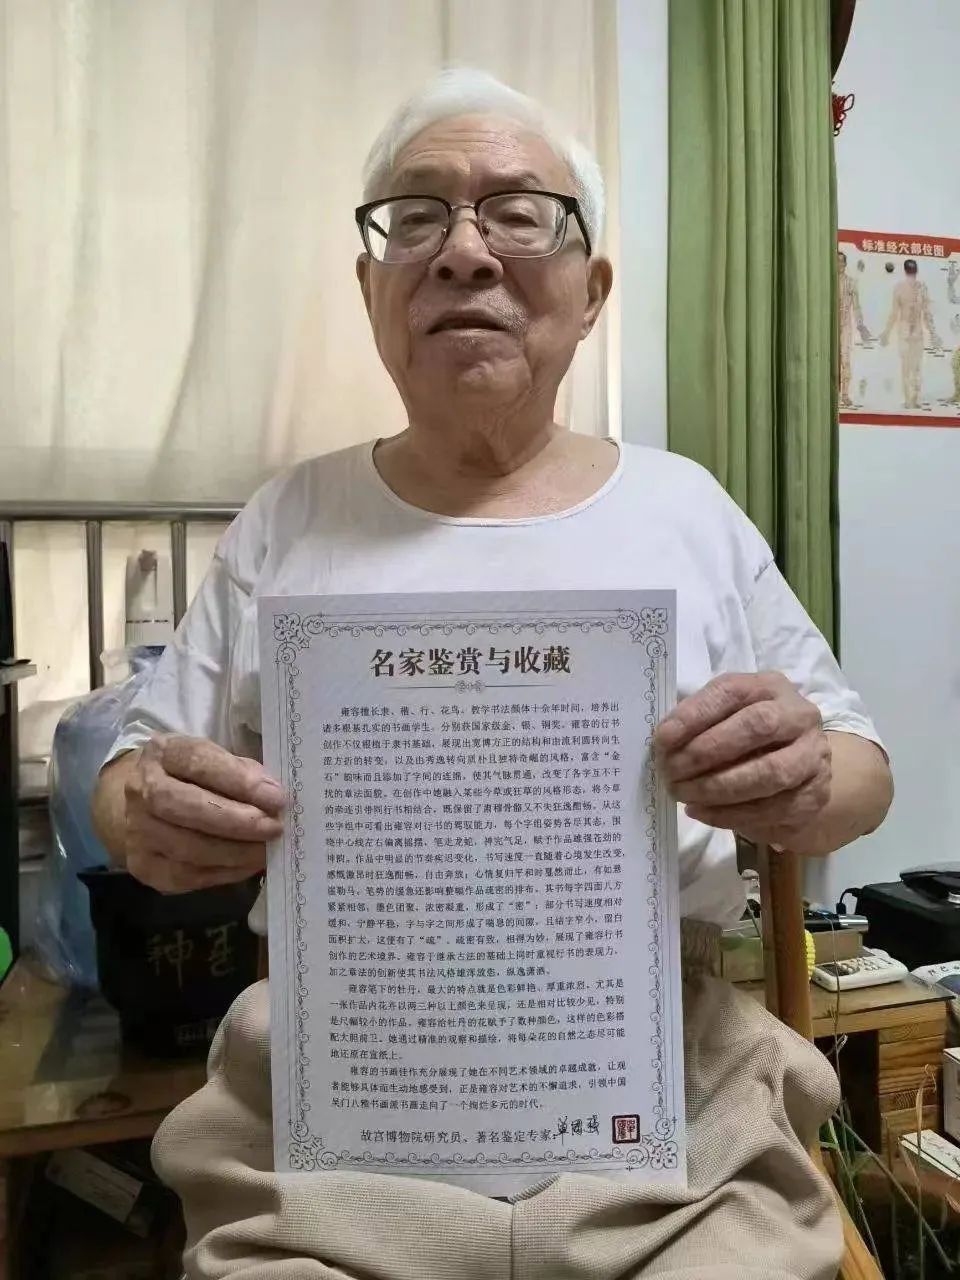 标准经穴部位图
名家鉴赏与收藏
雍容擅长隶、楷、行、花鸟。教学书法颜体十余年时间，培养出
诸多根基扎实的书画学生，分别获国家级金、银、铜奖。雍容的行书
创作不仅根植于隶书基础，展现出宽博方正的结构和由流利圆转向生
涩方折的转变，以及由秀逸转向质朴且独特奇崛的风格，富含“金
石”韵味而且添加了字间的连绵，使其气脉贯通，改变了各字互不干
扰的章法面貌。在创作中她融入某些今草或狂草的风格形态，将今草
的牵连引带同行书相结合，既保留了肃穆骨骼又不失狂逸酣畅。从这
些字组中可看出雍容对行书的驾驭能力，每个字组姿势各尽其态，围
绕中心线左右偏离摇摆，笔走龙蛇，神完气足，赋予作品雄强苍劲的
神韵，作品中明显的节奏疾迟变化，书写速度一直随着心境发生改变，
感慨激昂时狂逸酣畅，自由奔放；心情复归平和时戛然而止，有如悬
崖勒马，笔势的缓急还影响整幅作品疏密的排布，其书每字四面八方
紧紧相邻，墨色团聚，浓密凝重，形成了“密”；部分书写速度相对
缓和、宁静平稳，字与字之间形成了喘息的间隙，且结字窄小，留白
面积扩大，这便有了“疏”。疏密有致，相得为妙，展现了雍容行书
创作的艺术境界。雍容于继承古法的基础上同时重视行书的表现力，
加之章法的创新使其书法风格雄浑放恣，纵逸潇洒。
雍容笔下的牡丹，最大的特点就是色彩鲜艳、厚重浓烈，尤其是
一张作品内花卉以两三种以上颜色来呈现，还是相对比较少见，特别
是尺幅较小的作品，雍容给牡丹的花赋予了数种颜色，这样的色彩搭
配大胆前卫。她通过精准的观察和描绘，将每朵花的自然之态尽可能
地还原在宣纸上。
雍容的书画佳作充分展现了她在不同艺术领域的卓越成就，让观
者能够具体而生动地感受到，正是雍容对艺术的不懈追求，引领中国
吴门八雅书画派书画走向了一个绚烂多元的时代。
故宫博物院研究员、著名鉴定专家：单国强
神